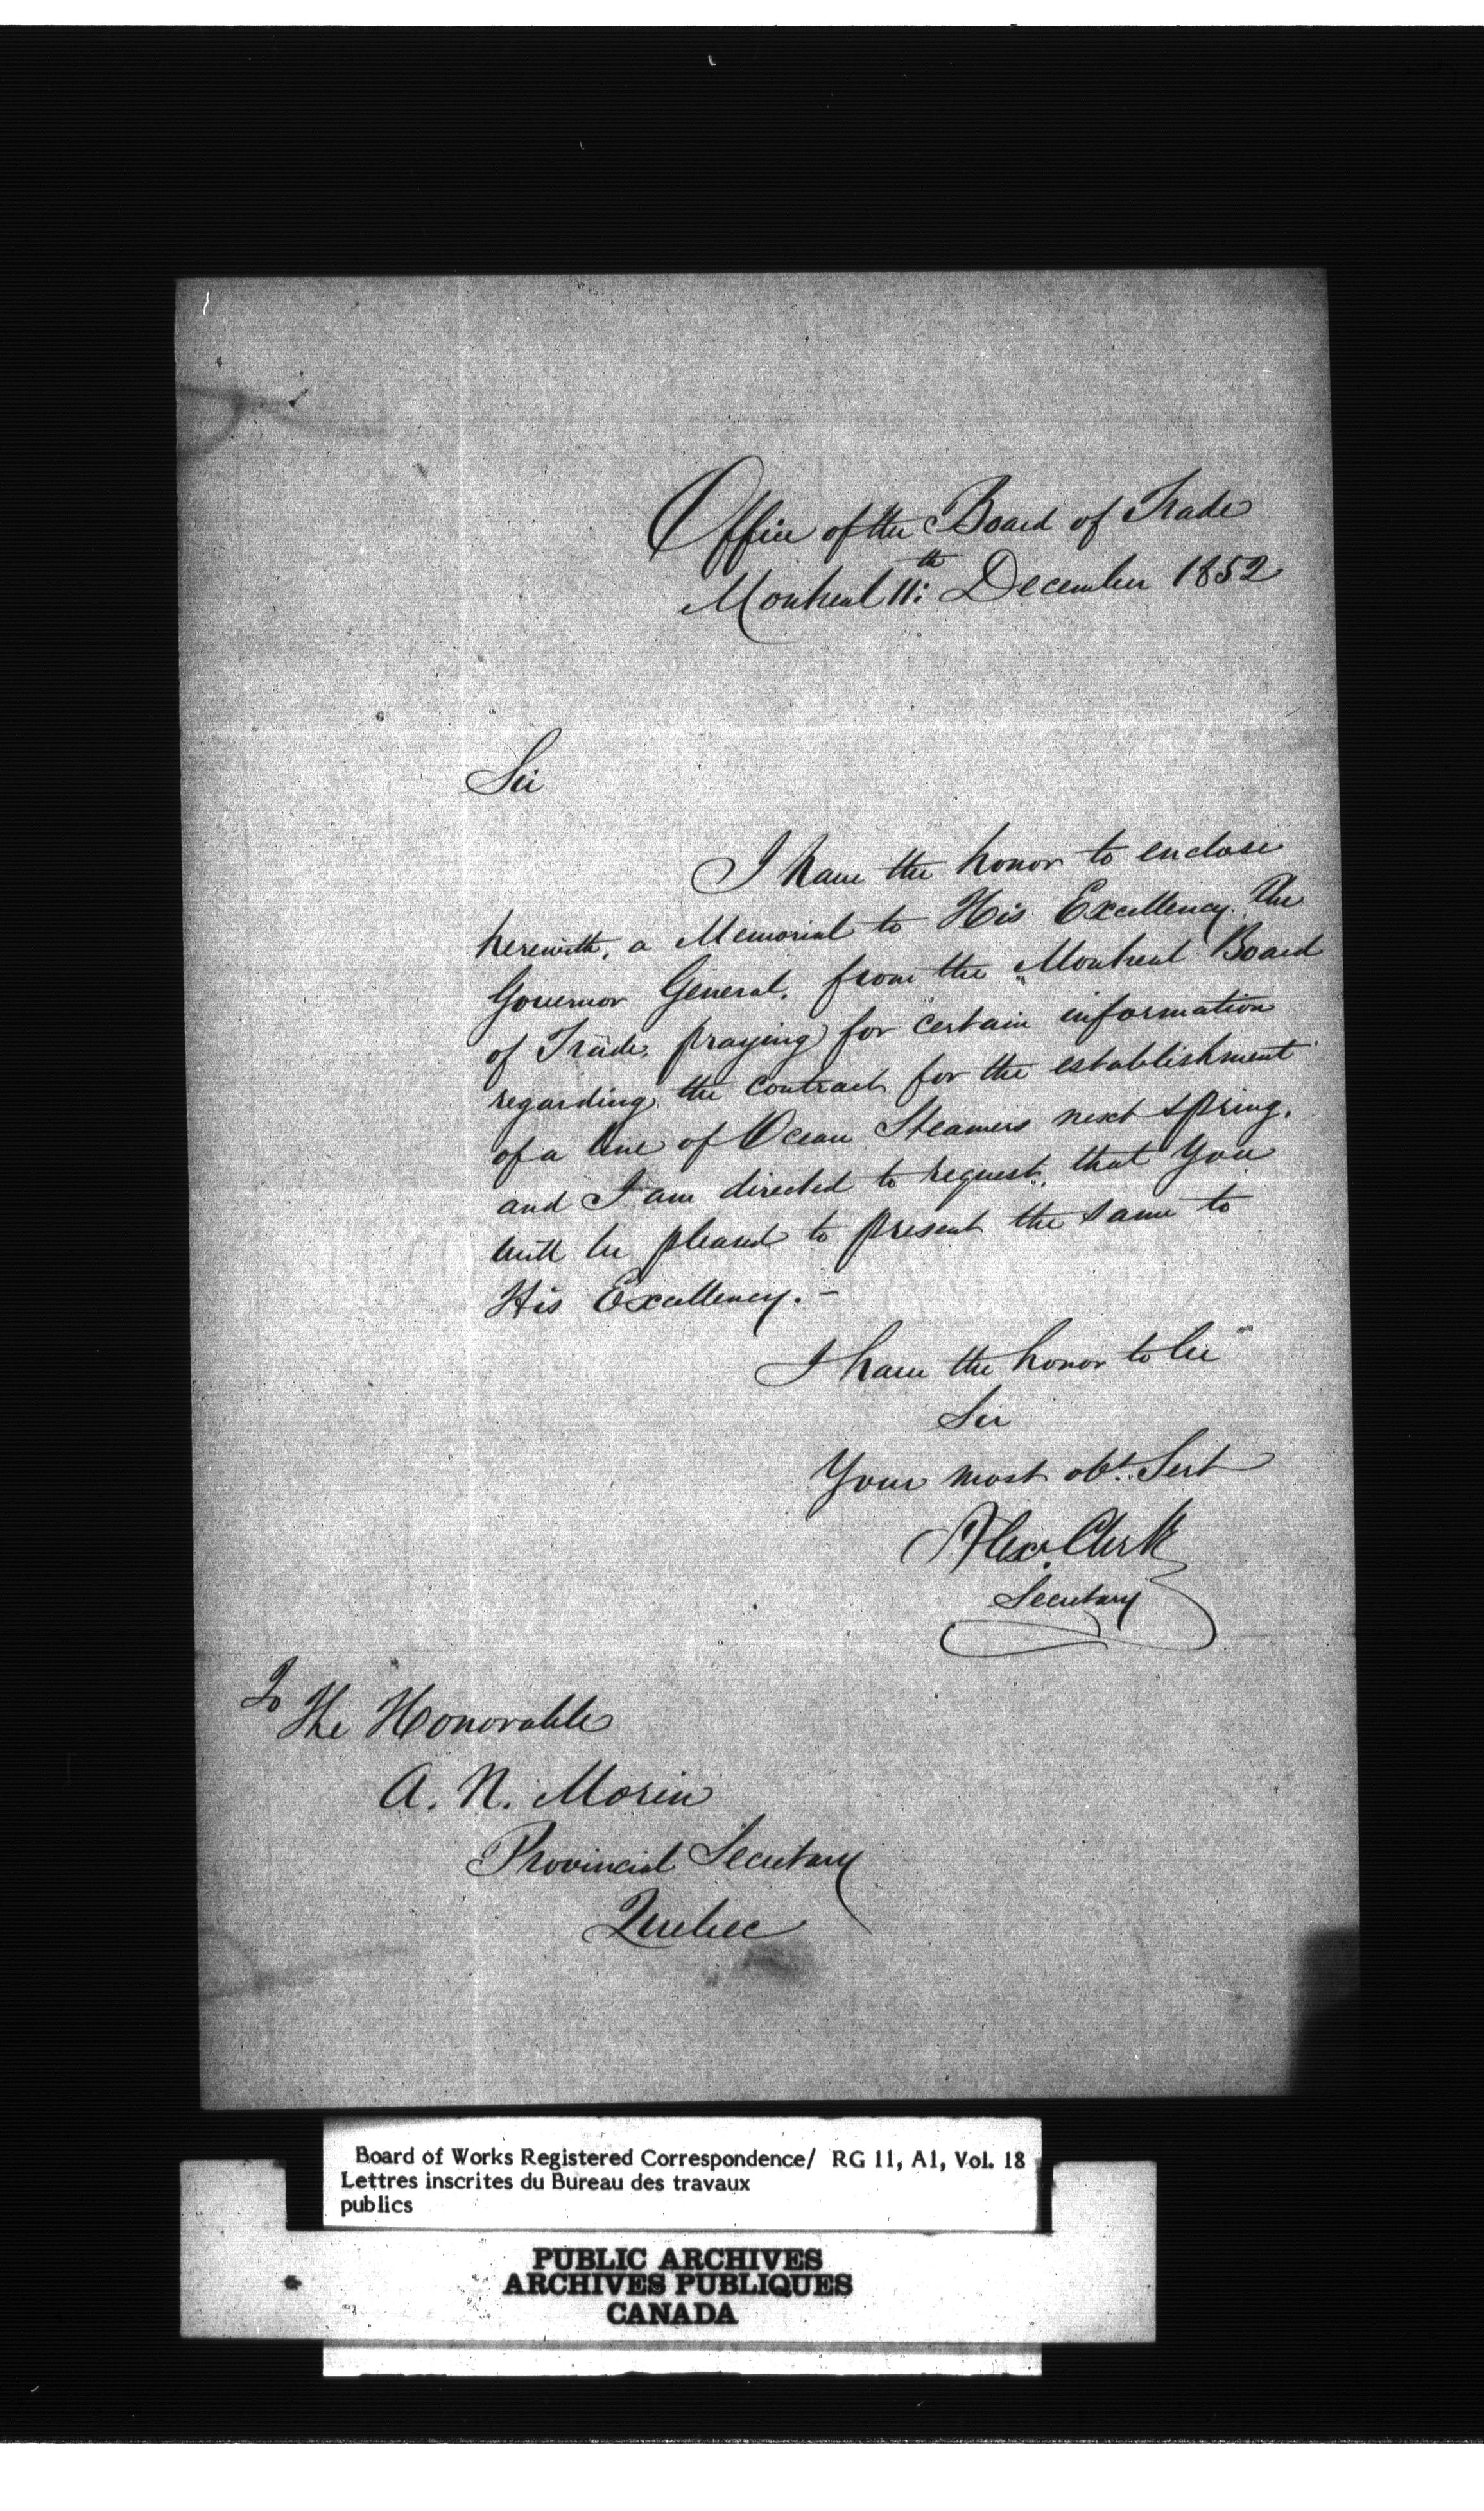 Office of the Board of Trade
Montreal 11th December 1852
Sir
I have the honor to enclose
herewith, a Memorial to His Excellency The
Governor General, from the Montreal Board
of Trade, praying for certain information
regarding the contract for the establishment
of a line of Ocean Steamers next spring,
and I am directed to request, that You
will be pleased to present the same to
His Excellency. –
I have the honor to be
Sir
Your most obt. Sert
Alexr. Clerk
Secretary
To
The Honorable
A. N. Morin
Provincial Secretary
Quebec
Board of Works Registered Correspondence/ RG 11, A1, Vol. 18
Lettres inscrites du Bureau des travaux
publics
PUBLIC ARCHIVES
ARCHIVES PUBLIQUES
CANADA